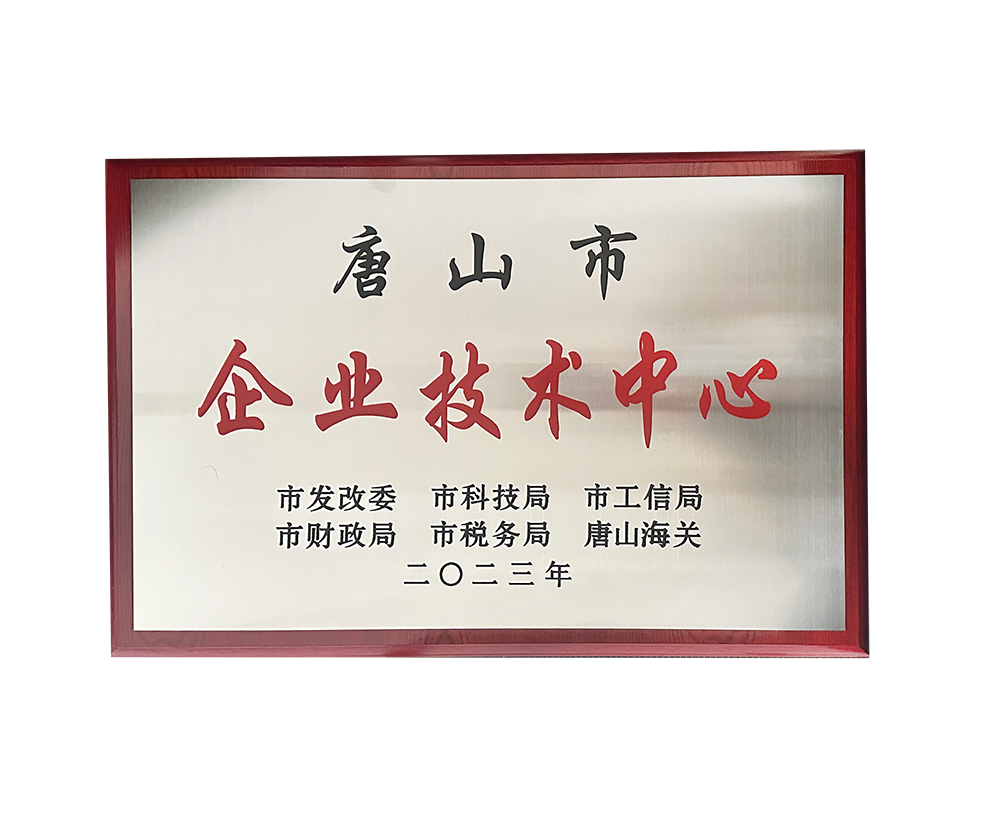 唐山市
企业技术中心
市发改委 市科技局 市工信局
市财政局 市税务局 唐山海关
二〇二三年